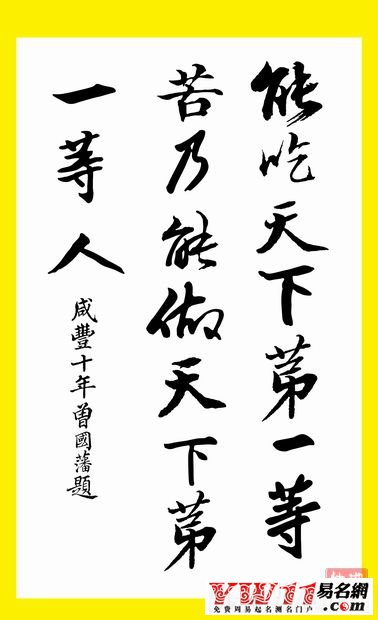 能吃天下第一等
苦乃能做天下第
一等人
咸豐十年曾國藩題
YW11易名網
.com
免费周易起名测名门户